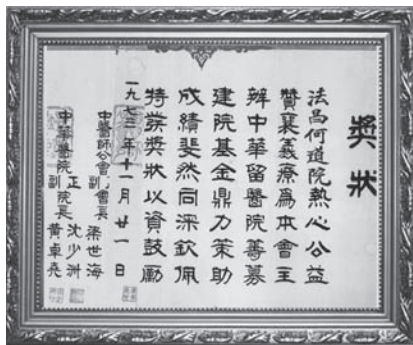 獎狀
法昌何道院熱心公益
贊襄義療為本會主
辦中華留醫院籌募
建院基金鼎力策助
成績斐然同深欽佩
特發獎狀以資鼓勵
一九七二年十一月廿一日
中醫師公會
正
副
會長
梁世海
中華醫院
正
副
院長
沈少洲
黃卓堯